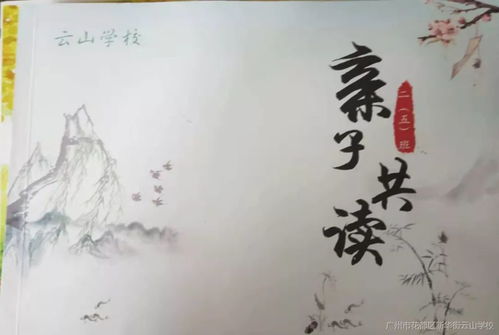 云山学校
亲子共读
二（五）班
广州市花都区新华街云山学校